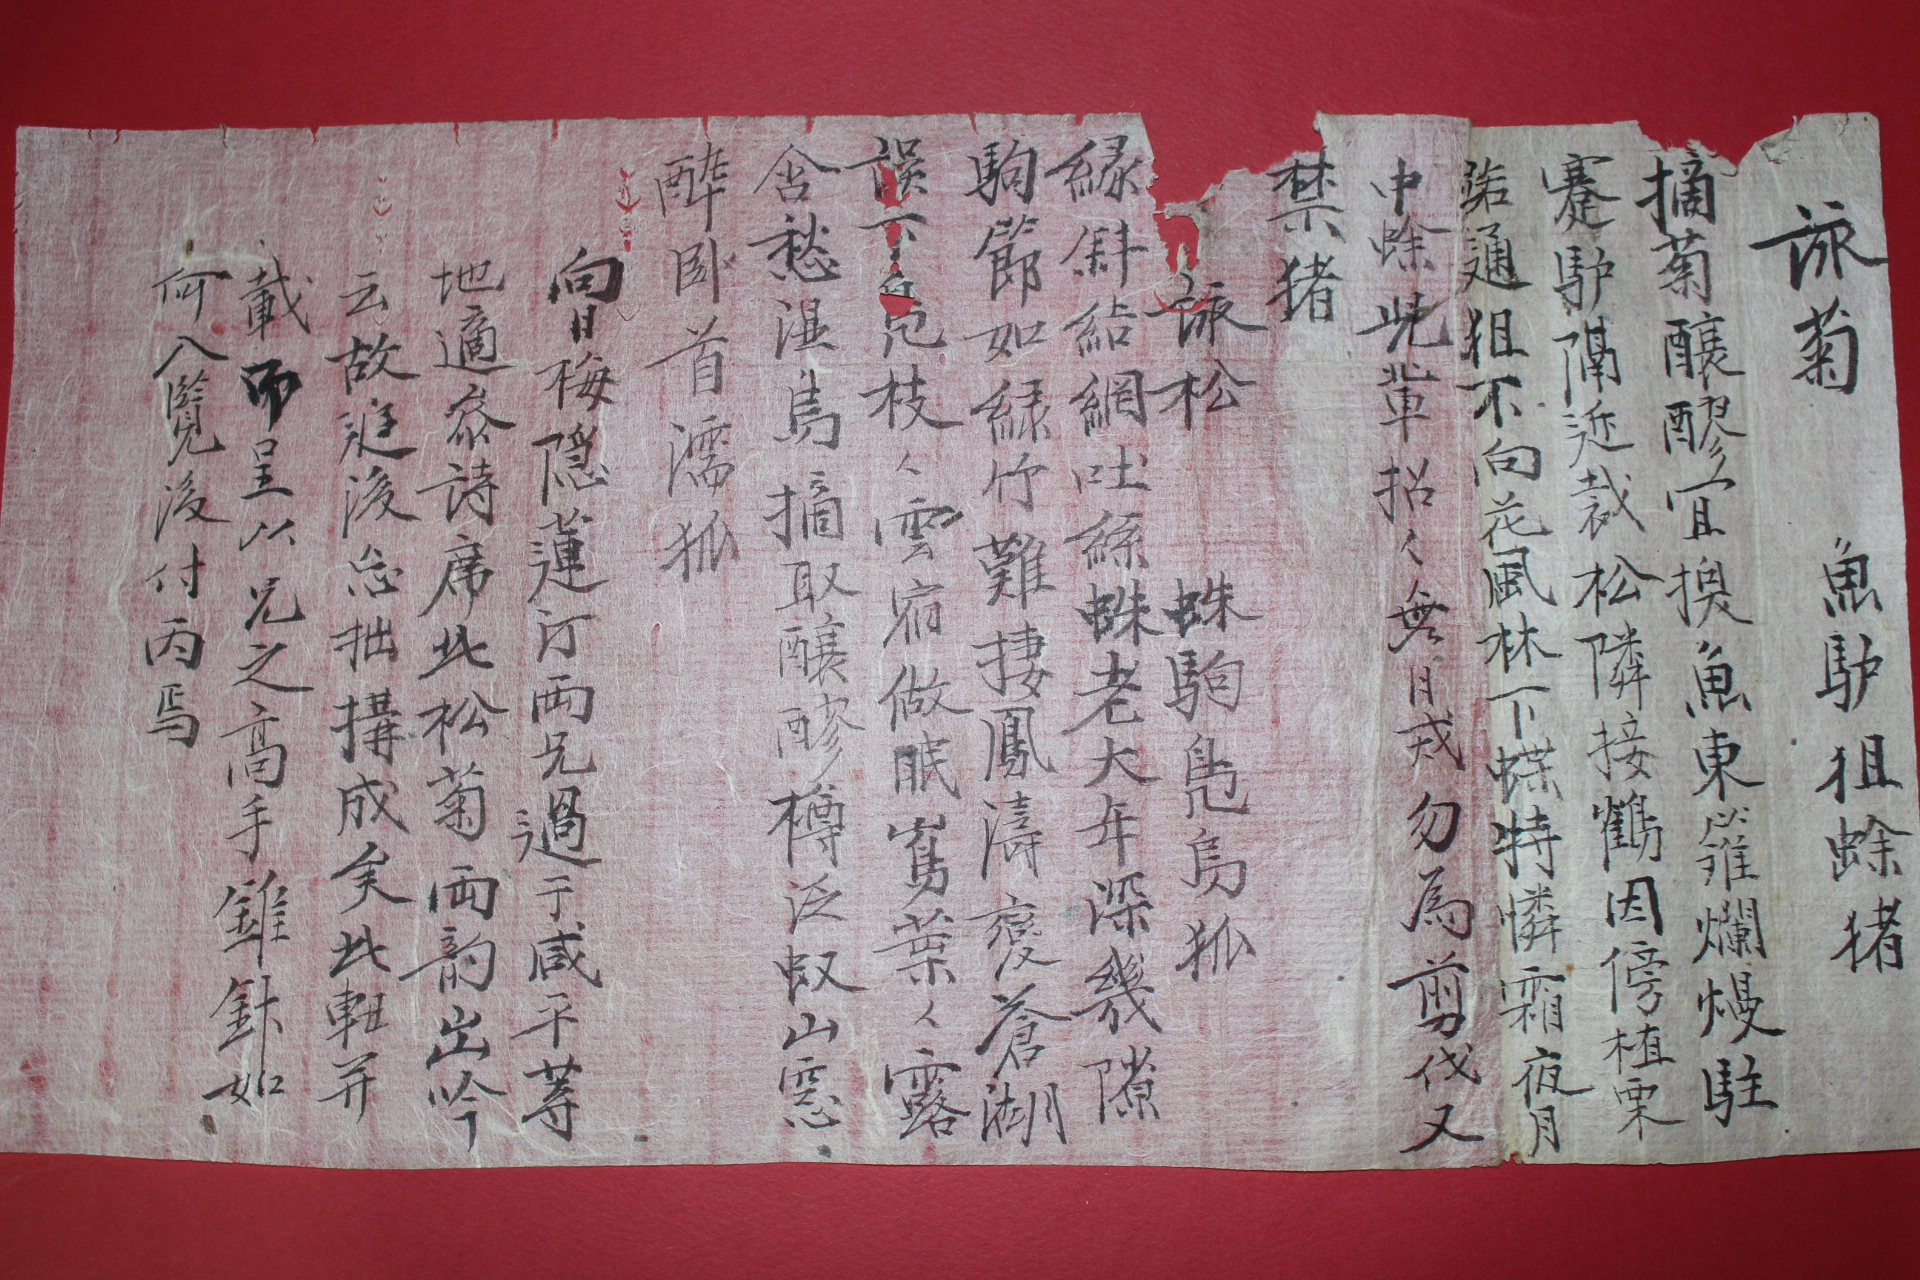 詠菊　魚馿狙蜍猪
摘菊釀醪宜換魚東籬爛熳駐
蹇馿隔近裁松隣接鶴因傍植栗
能通狙不向花風林下蝶特憐霜夜月
中蜍此輩招〻無月戎勿為剪伐又
禁猪
詠松　蛛駒鳧烏狐
緣斜結網吐絲蛛老大年深幾隙
駒節如綠竹難捿鳳濤變蒼湖
誤下鳧枝〻雲宿做眠嵩葉〻露
含愁湿烏摘取釀醪樽泛蚁山窓
醉卧首濡狐
向日梅隠蓮汀兩兄過于咸平等
地適叅詩席此松菊兩韵出吟
云故追後忘拙搆成矣此軸并
載而呈以兄之高手錐針如
何入覽後付丙焉